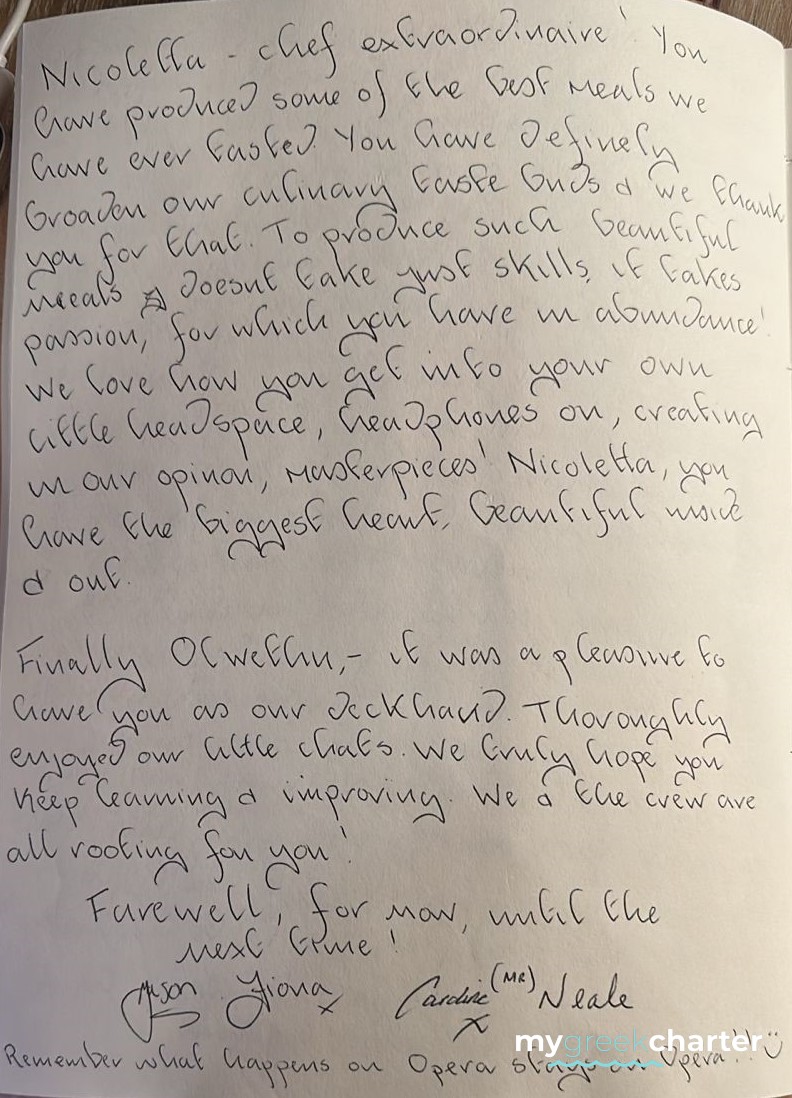 Nicoletta - chef extraordinaire! You
have produced some of the best meals we
have ever tasted. You have definely
broaden our culinary taste buds & we thank
you for that. To produce such beautiful
meals doesnt take just skills, it takes
passion, for which you have in abundance!
We love how you get into your own
little headspace, headphones on, creating
in our opinon, masterpieces! Nicoletta, you
have the biggest heart, beautiful inside
& out.
Finally Olwethu, - it was a pleasure to
have you as our deckhand. Thoroughly
enjoyed our little chats. We truly hope you
keep learning & improving. We & the crew are
all rooting for you!
Farewell, for now, until the
next time!
Jason Fiona x Caroline x (MR) Neale
mygreekcharter
Remember what happens on Opera stays on Opera!! ☺